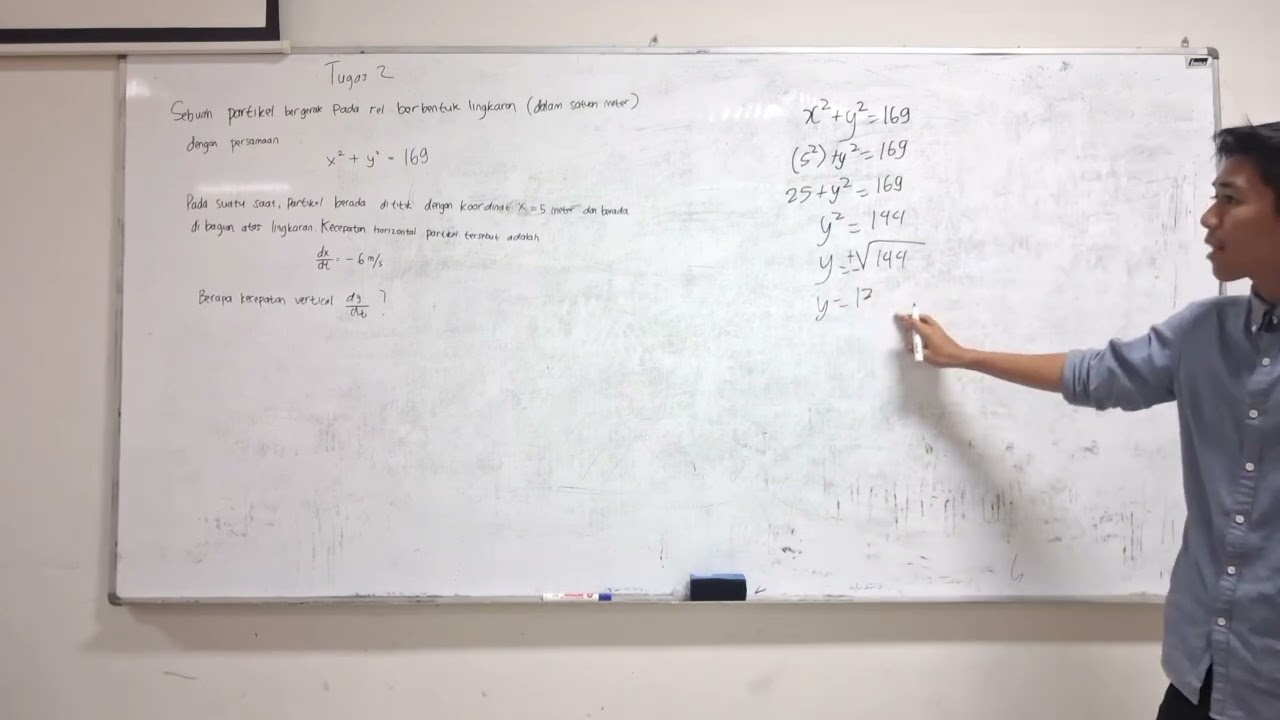 Tugas 2
Sebuah partikel bergerak pada rel berbentuk lingkaran (dalam satuan meter)
dengan persamaan
x² + y² = 169
Pada suatu saat, Partikel berada dititik dengan koordinat x = 5 meter dan berada
di bagian atas lingkaran. Kecepatan horizontal partikel tersebut adalah
dx/dt = -6 m/s
Berapa kecepatan vertical dy/dt ?
x² + y² = 169
(5²) + y² = 169
25 + y² = 169
y² = 144
y = ±√144
y = 12